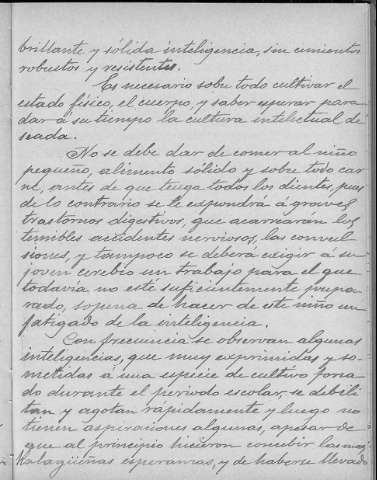 brillante y sólida inteligencia, sin cimientos
robustos y resistentes.
Es necesario sobre todo cultivar el
estado físico, el cuerpo, y saber esperar para
dar á su tiempo la cultura intelectual de
seada.
No se debe dar de comer al niño
pequeño, alimento sólido y sobre todo car
ne, antes de que tenga todos los dientes, pues
de lo contrario se le expondrá á graves
trastornos digestivos, que acarrearán los
temibles accidentes nerviosos, las convul
siones, y tampoco se deberá exigir á su
joven cerebro un trabajo para el que
todavía no esté suficientemente prepa
rado, so pena de hacer de este niño un
fatigado de la inteligencia.
Con frecuencia se observan algunas
inteligencias, que muy exprimidas y so-
metidas á una especie de cultivo forza
do durante el período escolar, se debili
tan y agotan rápidamente y luego no
tienen aspiraciones algunas, apesar de
que al principio hicieron concebir las más
halagüeñas esperanzas, y de haberse llevado